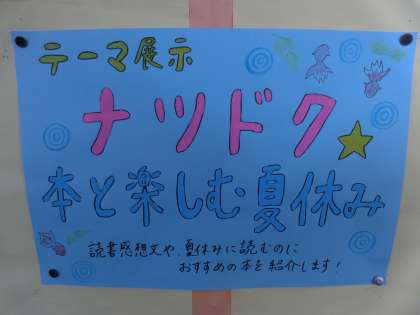 テーマ展示
ナツドク
本と楽しむ夏休み
読書感想文や、夏休みに読むのに
おすすめの本を紹介します！